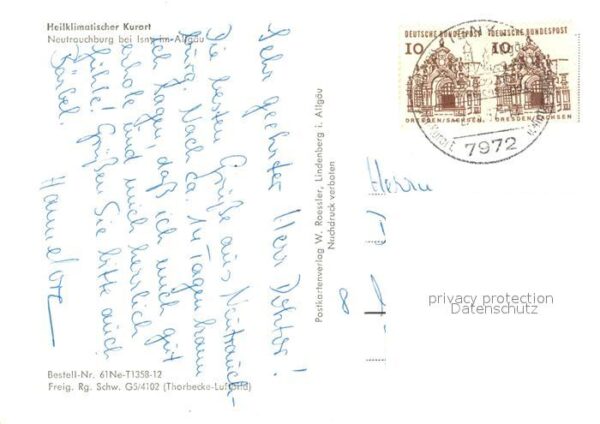 Heilklimatischer Kurort
Neutrauchburg bei Isny im Allgäu
Sehr geehrter Herr Doktor!
Die besten Grüße aus Neutrauch-
burg. Nach ca. 14 Tagen kann
ich sagen, daß ich mich gut
erhole und mich herrlich
fühle! Grüßen Sie bitte auch
Bärbel.
Hannelore
Bestell-Nr. 61Ne-T1358-12
Freig. Rg. Schw. G5/4102 (Thorbecke-Luftbild)
Postkartenverlag W. Roessler, Lindenberg i. Allgäu
Nachdruck verboten
DEUTSCHE BUNDESPOST
10
DRESDEN/SACHSEN
DEUTSCHE BUNDESPOST
10
DRESDEN/SACHSEN
7972
Herrn
8
privacy protection
Datenschutz